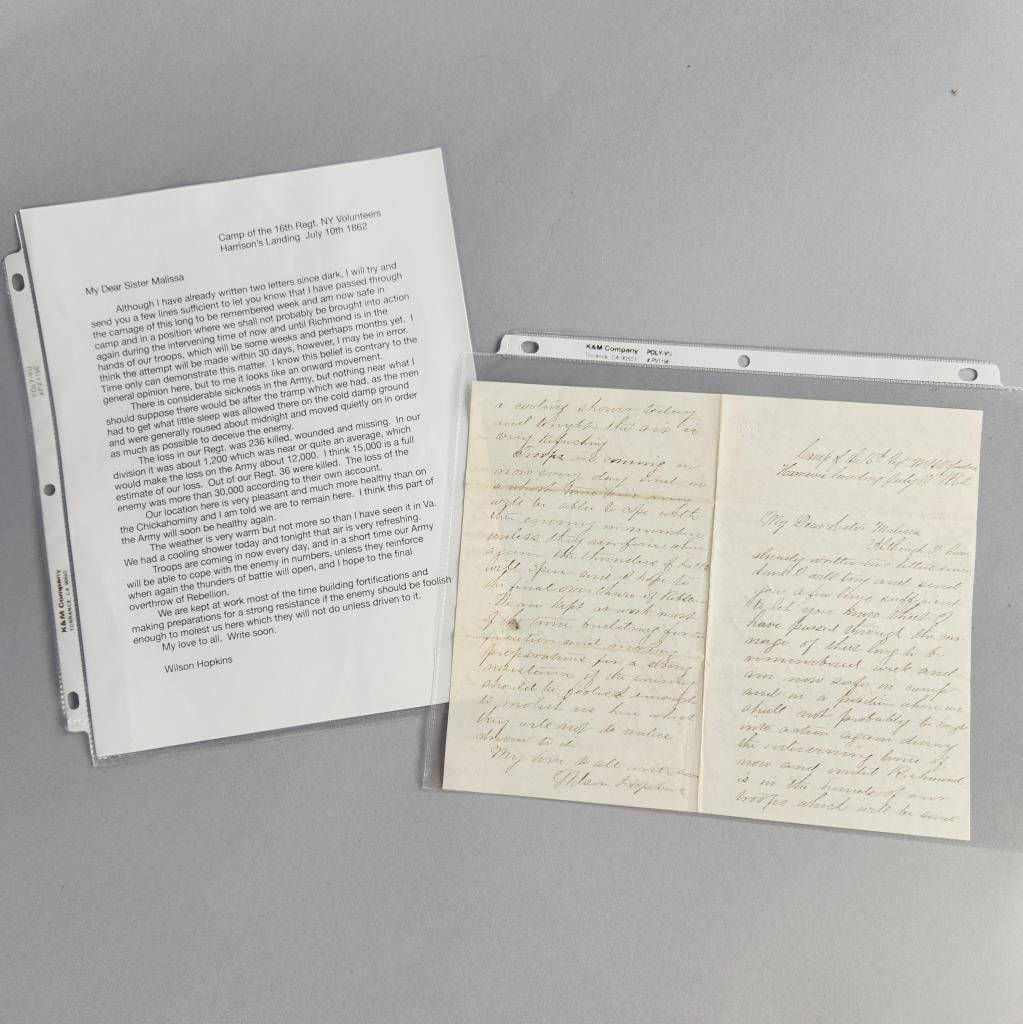 Camp of the 16th Regt. NY Volunteers
Harrison's Landing July 10th 1862
My Dear Sister Malissa
Although I have already written two letters since dark, I will try and
send you a few lines sufficient to let you know that I have passed through
the carnage of this long to be remembered week and am now safe in
camp and in a position where we shall not probably be brought into action
again during the intervening time of now and until Richmond is in the
hands of our troops, which will be some weeks and perhaps months yet. I
think the attempt will be made within 30 days, however, I may be in error.
Time only can demonstrate this matter. I know this belief is contrary to the
general opinion here, but to me it looks like an onward movement.
There is considerable sickness in the Army, but nothing near what I
should suppose there would be after the tramp which we had, as the men
had to get what little sleep was allowed there on the cold damp ground
and were generally roused about midnight and moved quietly on in order
as much as possible to deceive the enemy.
The loss in our Regt. was 236 killed, wounded and missing. In our
division it was about 1,200 which was near or quite an average, which
would make the loss on the Army about 12,000. I think 15,000 is a full
estimate of our loss. Out of our Regt. 36 were killed. The loss of the
enemy was more than 30,000 according to their own account.
Our location here is very pleasant and much more healthy than on
the Chickahominy and I am told we are to remain here. I think this part of
the Army will soon be healthy again.
The weather is very warm but not more so than I have seen it in Va.
We had a cooling shower today and tonight that air is very refreshing.
Troops are coming in now every day, and in a short time our Army
will be able to cope with the enemy in numbers, unless they reinforce
when again the thunders of battle will open, and I hope to the final
overthrow of Rebellion.
We are kept at work most of the time building fortifications and
making preparations for a strong resistance if the enemy should be foolish
enough to molest us here which they will not do unless driven to it.
My love to all. Write soon.
Wilson Hopkins
POLY-VU
# PV119E
K&M Company
TORRANCE, CA 90501
K&M Company POLY-VU
Torrance, CA 90501 # PV119E
a cooling shower today
and tonight the air is
very refreshing
Troops are coming in
now every day and in
a short time our army
will be able to cope with
the enemy in numbers
unless they reinforce when
again the thunders of battle
will open and I hope to
the final overthrow of Rebel
We are kept at work most
of the time building for
tification and making
preparations for a strong
resistance if the enemy
should be foolish enough
to molest us here which
they will not do unless
driven to it
My love to all write soon
Wilson Hopkins
Camp of the
Harrisons Landing July 10th 1862
My Dear Sister Malissa
Although I have
already written two letters since
dark I will try and send
you a few lines sufficient
to let you know that I
have passed through the car
nage of this long to be
remembered week and
am now safe in camp
and in a position where we
shall not probably be brought
into action again during
the intervening time of
now and until Richmond
is in the hands of our
troops which will be some